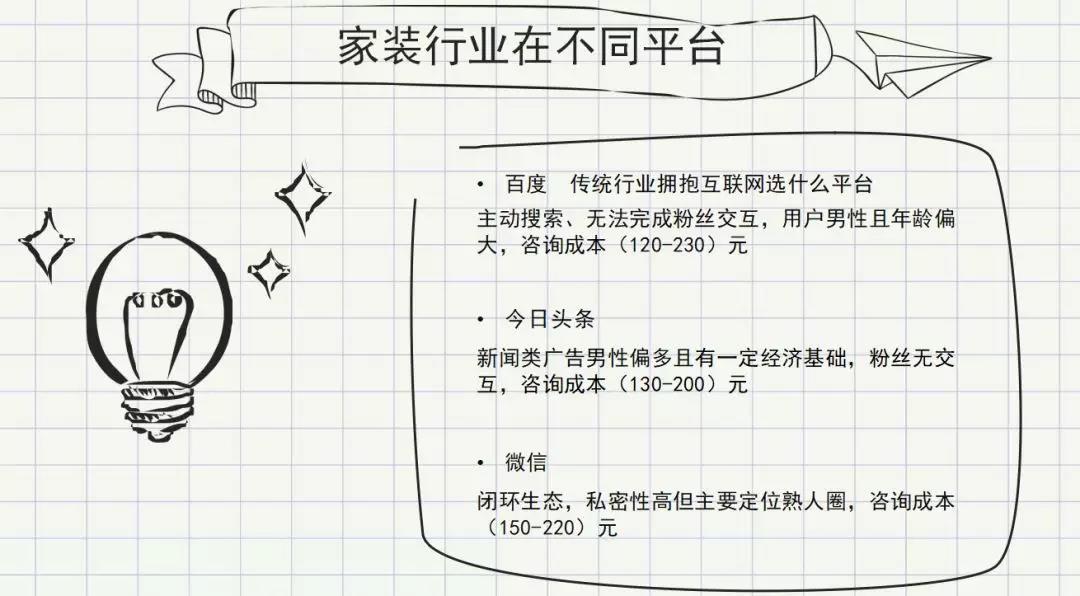 家装行业在不同平台
• 百度 传统行业拥抱互联网选什么平台
主动搜索、无法完成粉丝交互，用户男性且年龄偏
大，咨询成本（120-230）元
• 今日头条
新闻类广告男性偏多且有一定经济基础，粉丝无交
互，咨询成本（130-200）元
• 微信
闭环生态，私密性高但主要定位熟人圈，咨询成本
（150-220）元